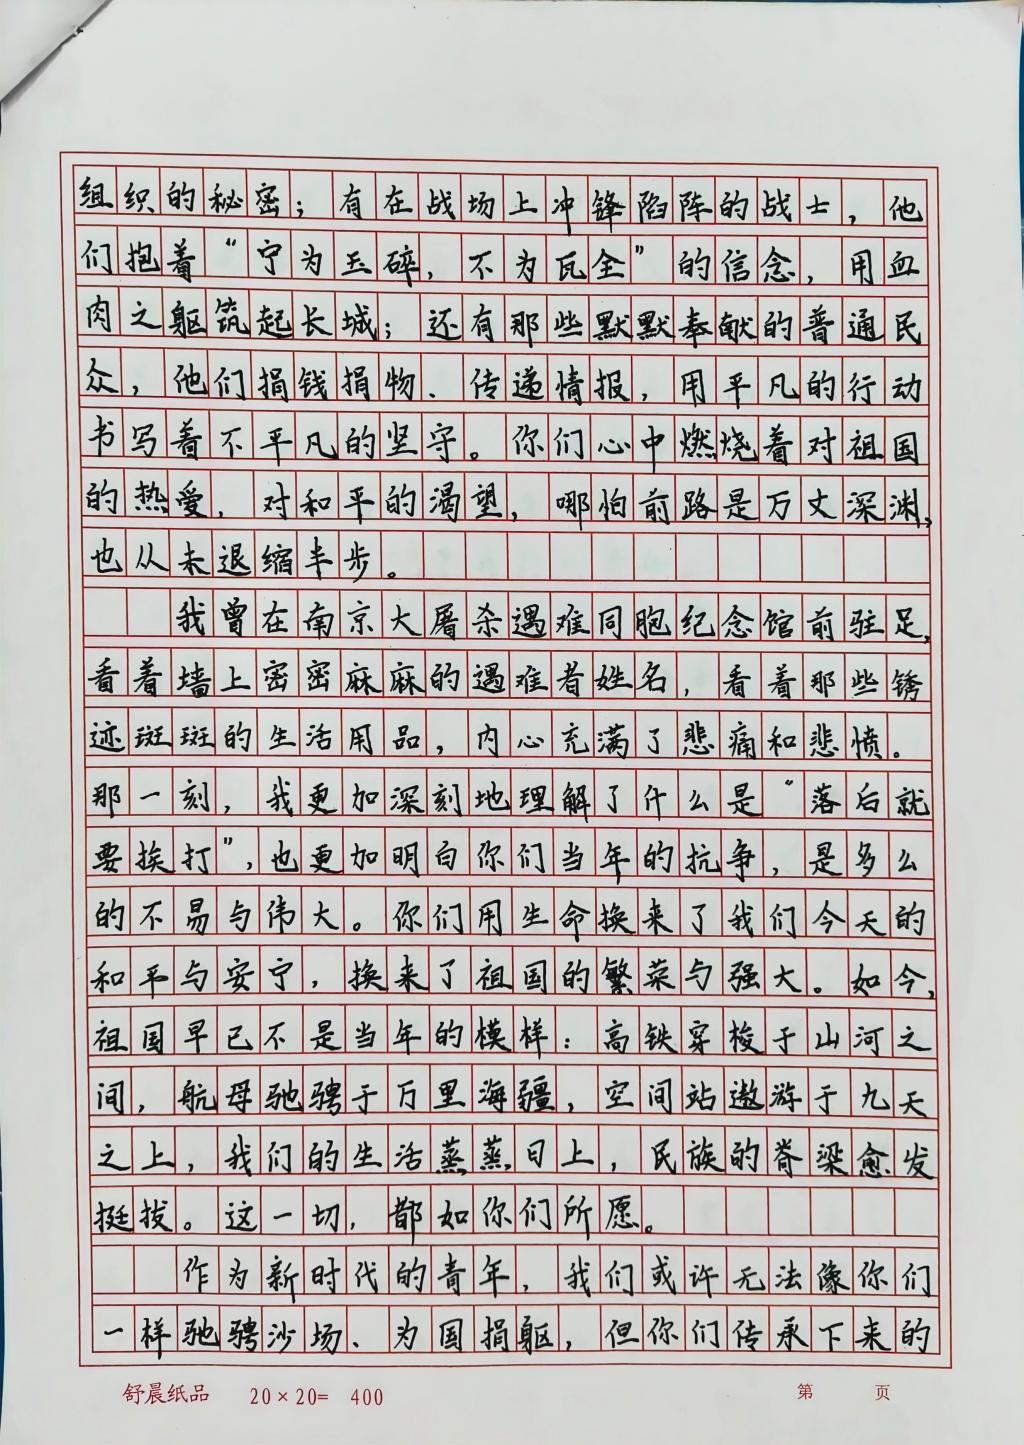 组织的秘密；有在战场上冲锋陷阵的战士，他
们抱着“宁为玉碎，不为瓦全”的信念，用血
肉之躯筑起长城；还有那些默默奉献的普通民
众，他们捐钱捐物、传递情报，用平凡的行动
书写着不平凡的坚守。你们心中燃烧着对祖国
的热爱，对和平的渴望，哪怕前路是万丈深渊，
也从未退缩半步。
我曾在南京大屠杀遇难同胞纪念馆前驻足，
看着墙上密密麻麻的遇难者姓名，看着那些锈
迹斑斑的生活用品，内心充满了悲痛和悲愤。
那一刻，我更加深刻地理解了什么是“落后就
要挨打”，也更加明白你们当年的抗争，是多么
的不易与伟大。你们用生命换来了我们今天的
和平与安宁，换来了祖国的繁荣与强大。如今，
祖国早已不是当年的模样：高铁穿梭于山河之
间，航母驰骋于万里海疆，空间站遨游于九天
之上，我们的生活蒸蒸日上，民族的脊梁愈发
挺拔。这一切，都如你们所愿。
作为新时代的青年，我们或许无法像你们
一样驰骋沙场、为国捐躯，但你们传承下来的
舒晨纸品 20×20= 400 第 页